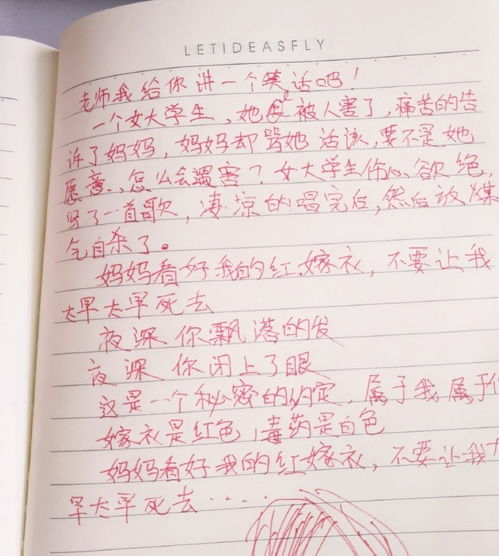 LETIDEASFLY
老师我给你讲一个笑话吧！
一个女大学生，她 被人害了，痛苦的告
诉了妈妈，妈妈却骂她活该，要不是她
愿意、怎么会遇害？女大学生伤心欲绝，
写了一首歌，凄凉的唱完后，然后放煤
气自杀了。
妈妈看好我的红嫁衣，不要让我
太早太早死去
夜深 你飘落的发
夜深 你闭上了眼
这是一个秘密的约定，属于我属于
嫁衣是红色，毒药是白色
妈妈看好我的红嫁衣，不要让我
早太早死去....